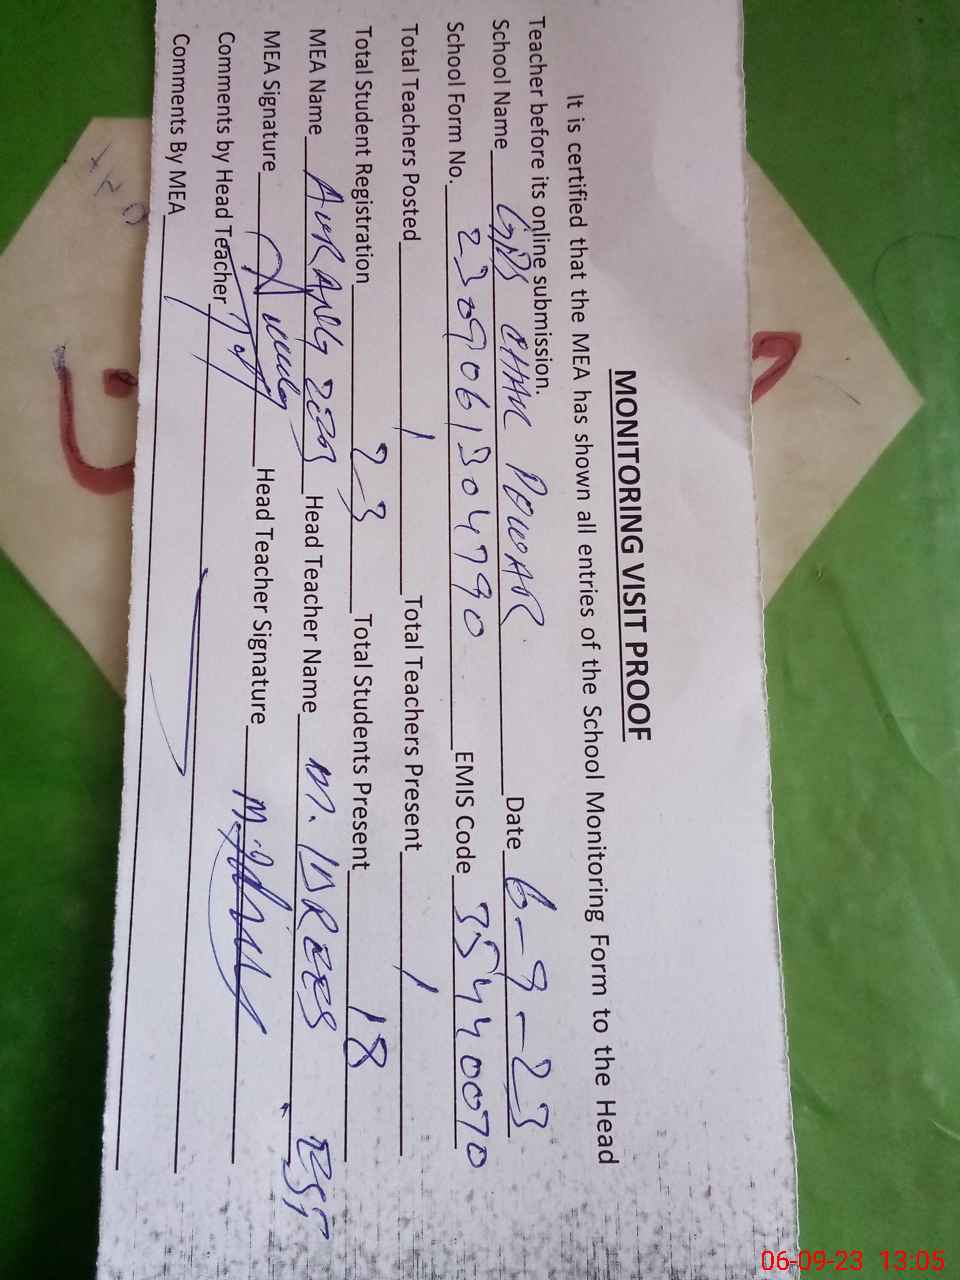 MONITORING VISIT PROOF
It is certified that the MEA has shown all entries of the School Monitoring Form to the Head
Teacher before its online submission.
School Name GPS CHAK POWAR Date 6-9-23
School Form No. 2309061304790 EMIS Code 35440070
Total Teachers Posted 1 Total Teachers Present 1
Total Student Registration 23 Total Students Present 18
MEA Name AURANG ZEB Head Teacher Name M. IDREES
MEA Signature Head Teacher Signature
Comments by Head Teacher
Comments By MEA
06-09-23 13:05